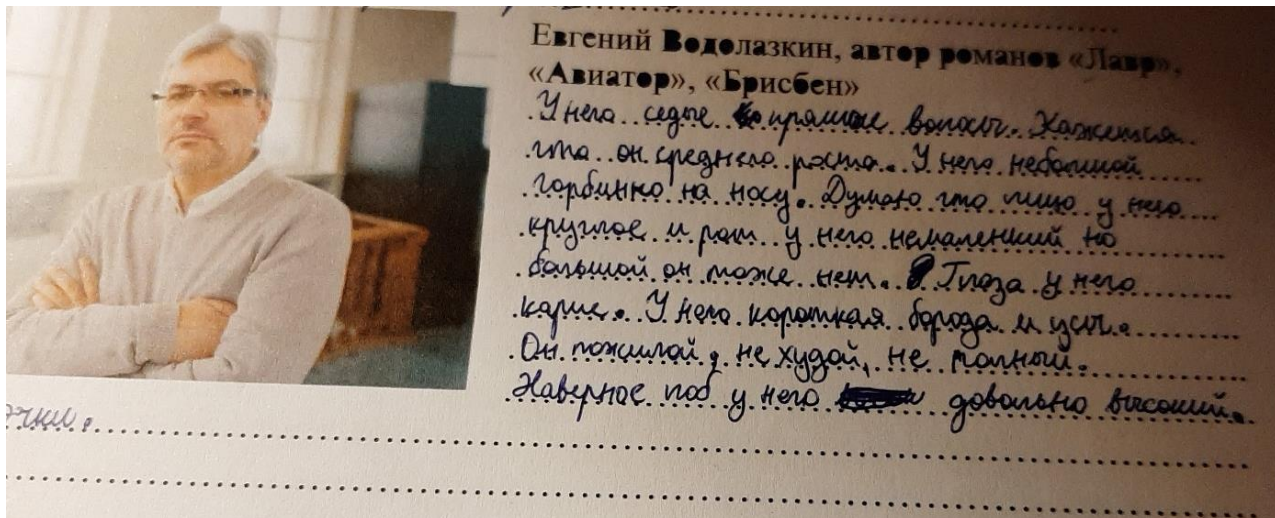 Евгений Водолазкин, автор романов «Лавр»,
«Авиатор», «Брисбен»
У него седые прямые волосы. Кажется
что он среднего роста. У него небольшой
горбинка на носу. Думаю что лицо у него
круглое и рот у него немаленький но
большой он тоже нет. Глаза у него
карие. У него короткая борода и усы.
Он пожилой, не худой, не полный.
Наверное лоб у него довольно высокий.